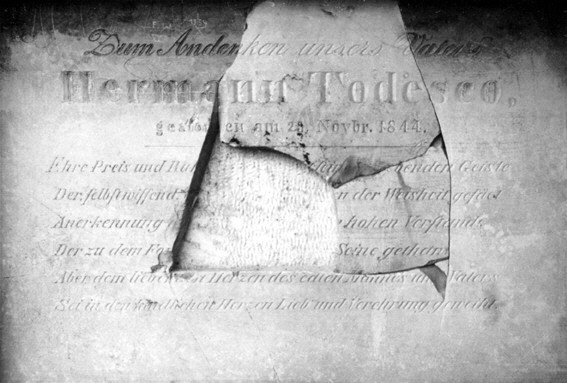 Zum Andenken unsers Vaters
Hermann Todesco,
gestorben am Novbr. 1844.
Ehre Preis und Geiste
Der, selbst wissend der Weisheit gesäet
Anerkennung hohen Verstande
Der zu dem Seine gethan
Aber dem Herzen des edlen Mannes und Vaters
Sei in den kindlichen Herzen Lieb' und Verehrung geweiht.